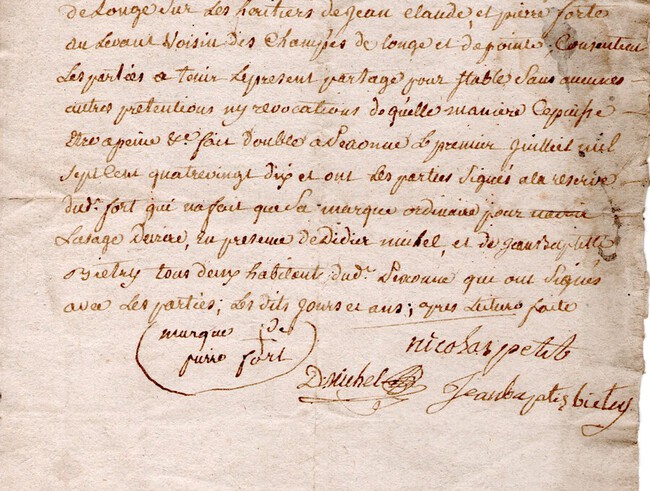 de Longe sur les heritiers de jean claude, et pierre forte
au Levant voisin des champs de longe et de pointe; Consentent
Les parties a tenir Le present partage pour stable sans aucunes
autres pretentions ny revocations de quelle maniere Ce puisse
Etre a peine &c. fait double a Peronne Le premier juillet mil
sept Cent quatrevingt dix et ont Les parties signés a la reserve
dud. fort qui na fait que Sa marque ordinaire pour
Lusage Decrire, En presence de Didier michel, et de Jean Baptiste
Bietry tous deux habitent dud. que ont signés
avec Les parties, Les dits jours et ans; apres Lecture faite
marque de
pierre fort
nicolas petit
D. Michel
Jean baptis bietry